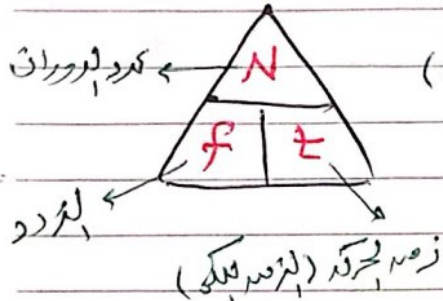 عدد الدورات
N
)
f t
التردد
زمن الحركة (الزمن الكلي)